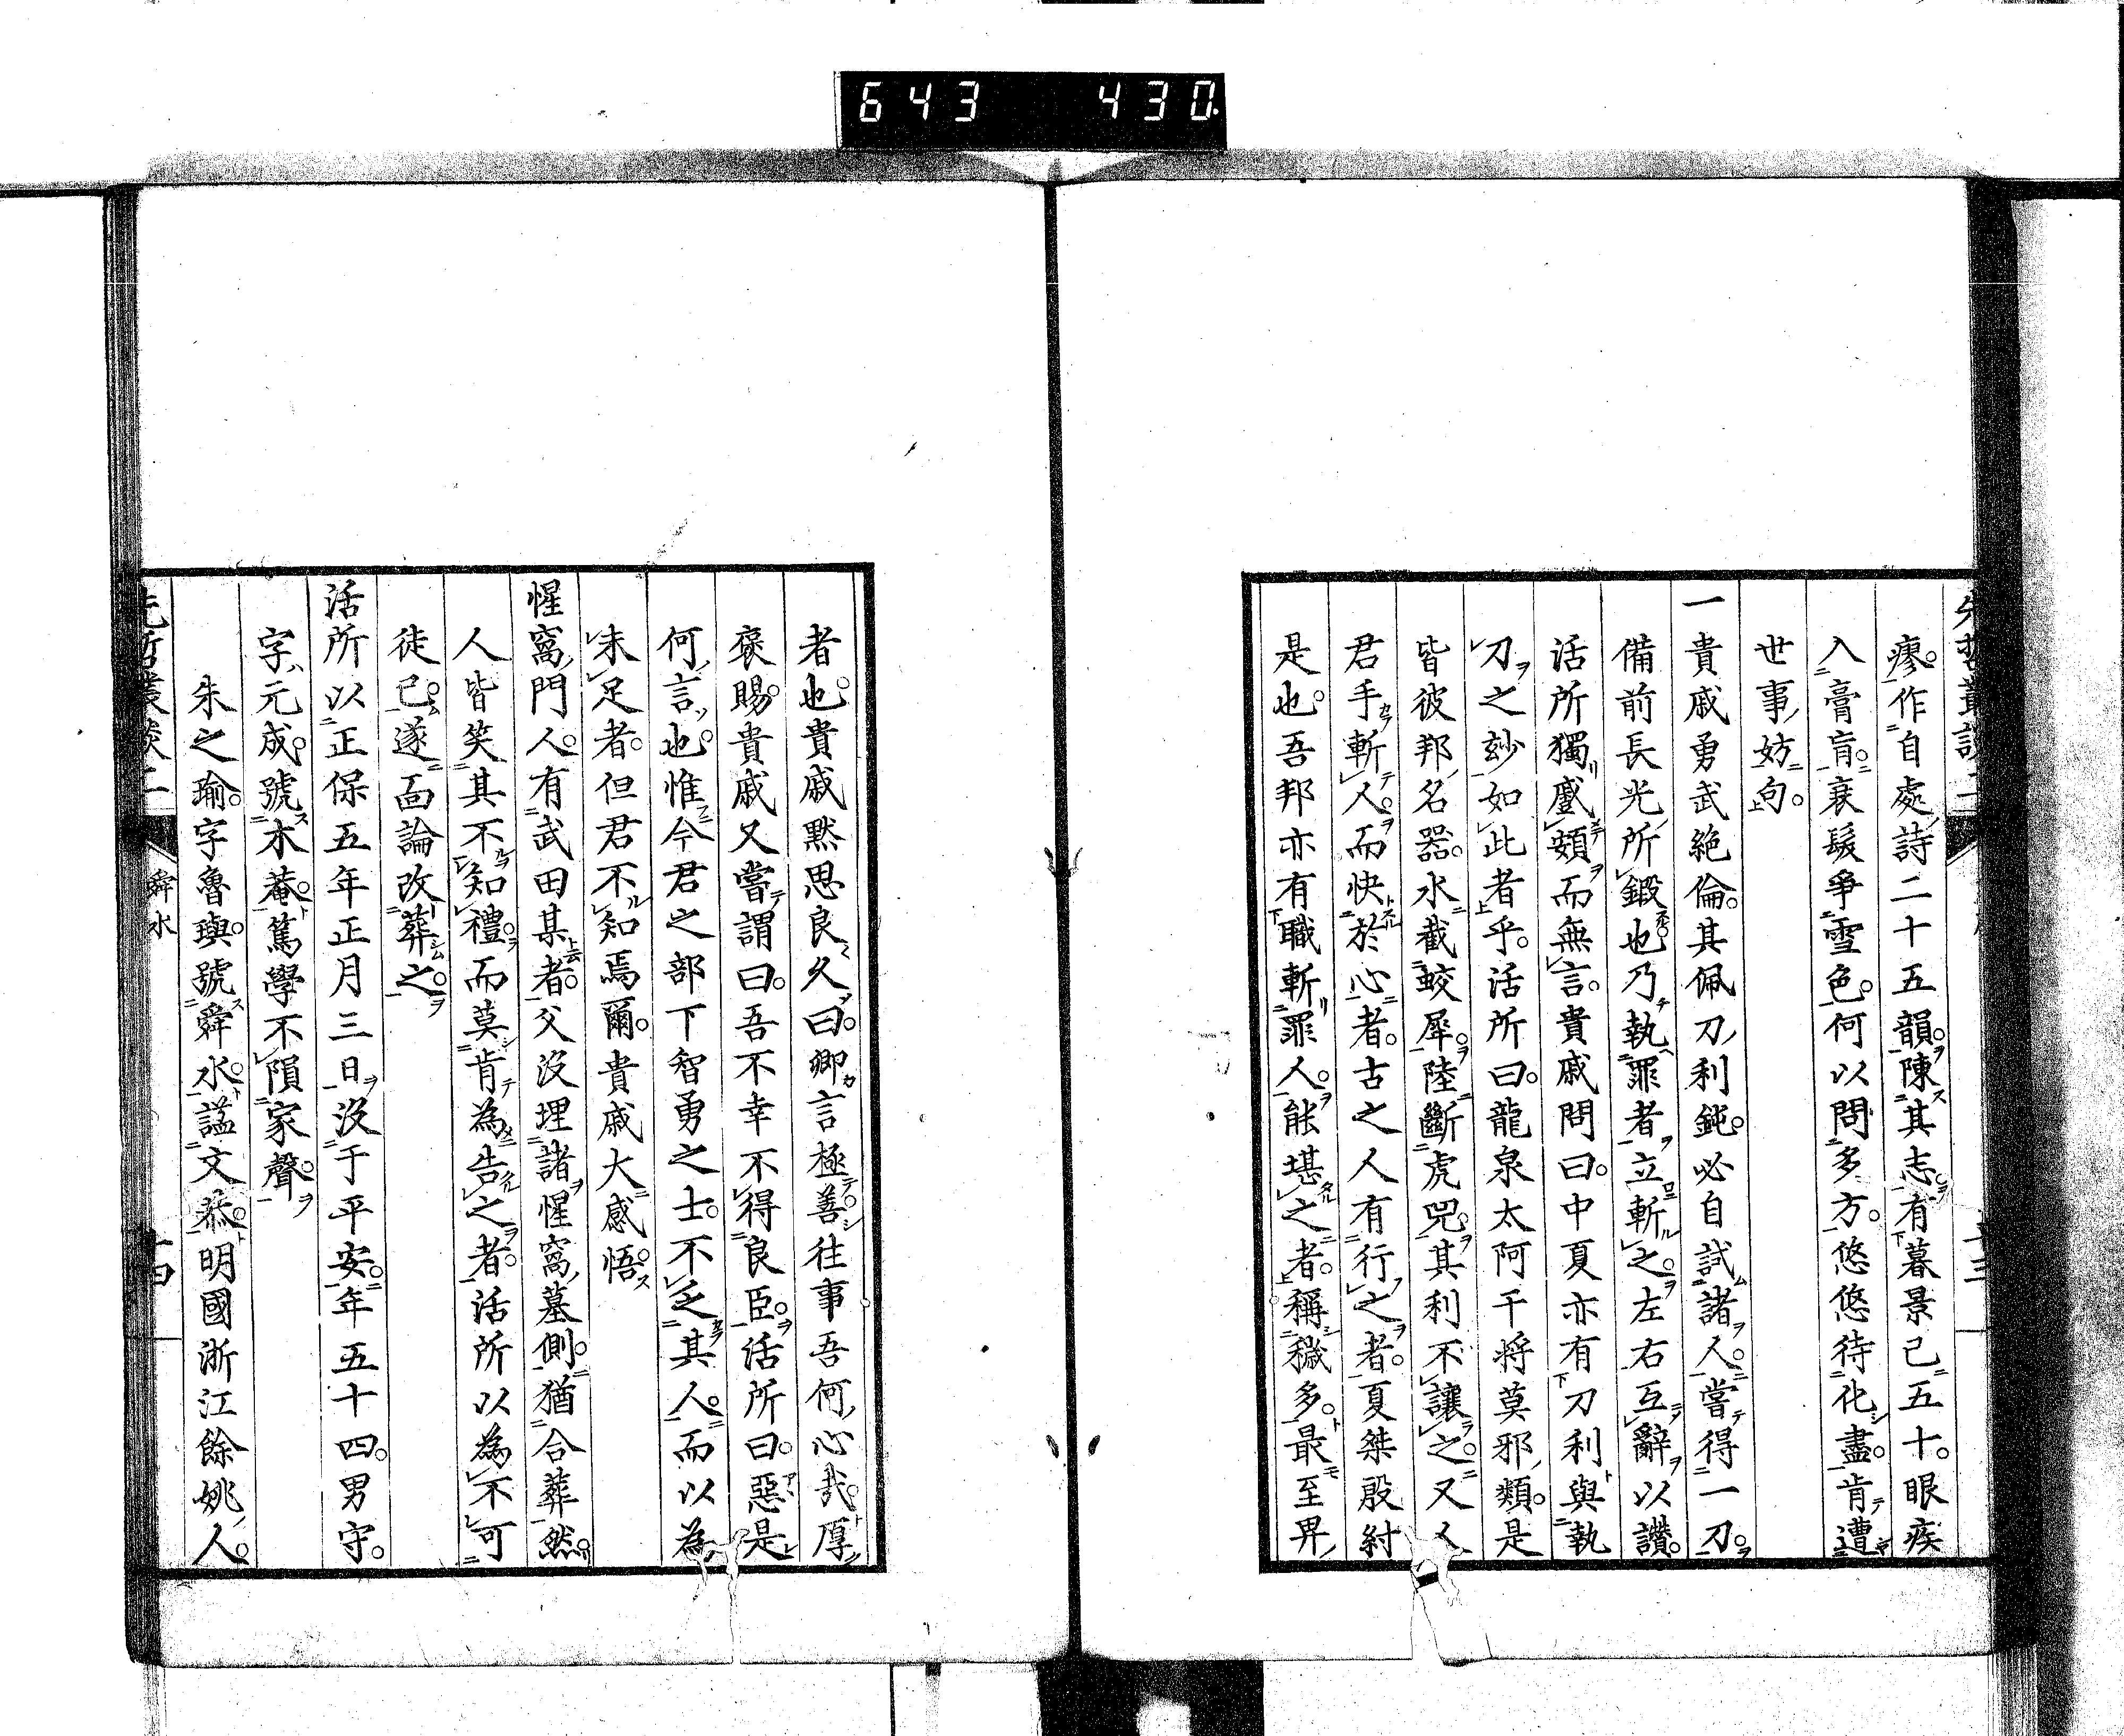 643 430
瘳作自處詩二十五韻陳其志有暮景已五十眼疾
入膏肓衰髮爭雪色何以問多方悠悠待化盡肯遭
世事妨句
一貴戚勇武絕倫其佩刀利鈍必自試諸人嘗得一刀
備前長光所鍛也乃執罪者立斬之左右互辭以讚
活所獨蹙頞而無言貴戚問曰中夏亦有刀利與執
刀之玅如此者乎活所曰龍泉太阿干將莫邪類是
皆彼邦名器水截蛟犀陸斷虎兕其利不讓之又人
君手斬人而快於心者古之人有行之者夏桀殷紂
是也吾邦亦有職斬罪人能堪之者稱穢多最至卑
者也貴戚默思良久曰卿言極善往事吾何心哉厚
褒賜貴戚又嘗謂曰吾不幸不得良臣活所曰惡是
何言也惟今君之部下智勇之士不乏其人而以為
未足者但君不知焉爾貴戚大感悟
惺窩門人有武田某者父沒埋諸惺窩墓側猶合葬然
人皆笑其不知禮而莫肯為告之者活所以為不可
徒已遂面論改葬之
活所以正保五年正月三日沒于平安年五十四男守
字元成號木菴篤學不隕家聲
朱之瑜字魯璵號舜水諡文恭明國浙江餘姚人
先哲叢談二 舜水 十四